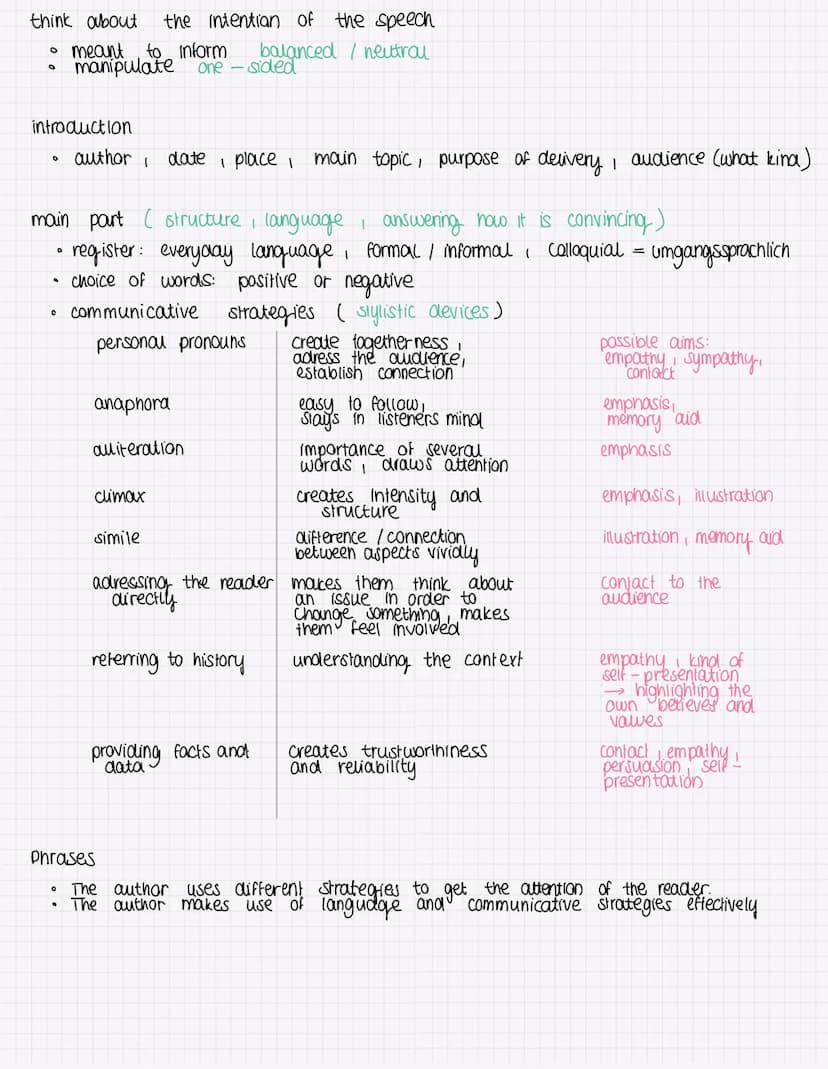 think about the intention of the speech
• meant to inform balanced / neutral
• manipulate one-sided
introduction
• author, date, place, main topic, purpose of delivery, audience (what kind)
main part (structure, language, answering how it is convincing)
• register: everyday language, formal / informal, colloquial = umgangssprachlich
• choice of words: positive or negative
• communicative strategies (stylistic devices)
personal pronouns
create togetherness,
adress the audience,
establish connection
possible aims:
empathy, sympathy,
contact
anaphora
easy to follow,
stays in listeners mind
emphasis,
memory aid
alliteration
importance of several
words, draws attention
emphasis
climax
creates intensity and
structure
emphasis, illustration
simile
difference / connection
between aspects vividly
illustration, memory aid
adressing the reader
directly
makes them think about
an issue in order to
change something, makes
them feel involved
contact to the
audience
referring to history
understanding the context
empathy, kind of
self-presentation
→ highlighting the
own believes and
values
providing facts and
data
creates trustworthiness
and reliability
contact, empathy,
persuasion, self-
presentation
Phrases
• The author uses different strategies to get the attention of the reader.
• The author makes use of language and communicative strategies effectively